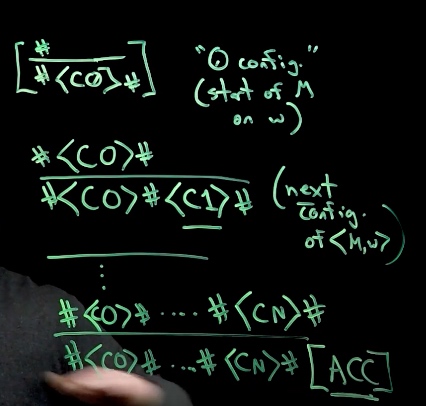 #
"0 config."
#<C0>#
(start of M
on w)
#<C0>#
#<C0>#<C1>#
(next
config.
of <M,w>)
⋮
#<C0>#....#<CN>#
#<C0>#....#<CN># [ACC]